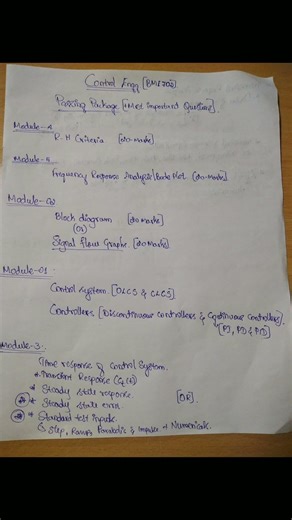 Control Engg [BME702]
Passing Package [Most Important Questions]
Module-4
R H Criteria [20-Marks]
Module-5
Frequency Response Analysis/Bode Plot. [20-Marks]
Module-02
Block diagram [20 Marks]
(or)
Signal flow Graphs [20 Marks]
Module-01:
Control system [OLCS & CLCS].
Controllers [Discontinuous controllers & Continuous Controllers].
[PI, PD & PID]
Module-3:.
Time response of Control System.
* Transient Response
* Steady state response. [OR]
* Steady state error.
* Standard test inputs.
Step, Ramp, Parabolic & Impulse & Numericals.